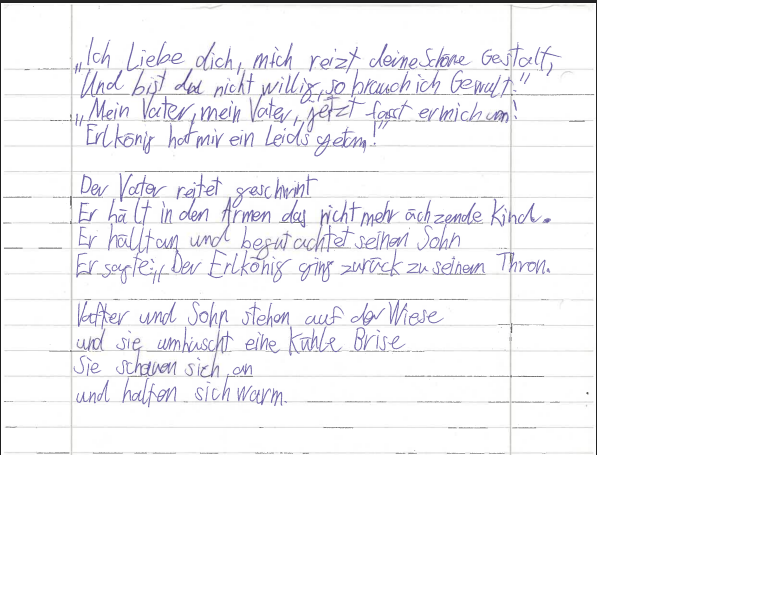 „Ich Liebe dich, mich reizt deine Schöne Gestalt,
Und bist du nicht willig, so brauch ich Gewalt."
„Mein Vater, mein Vater, jetzt fasst er mich an!
Erlkönig hat mir ein Leids getan!"
Der Vater reitet geschwint
Er hält in den Armen das nicht mehr ächzende Kind.
Er hällt an und begutachtet seinen Sohn
Er sagte: „Der Erlkönig ging zurück zu seinem Thron.
Vatter und Sohn stehen auf der Wiese
und sie umhuscht eine Kühle Brise
Sie schauen sich an
und halten sich warm.